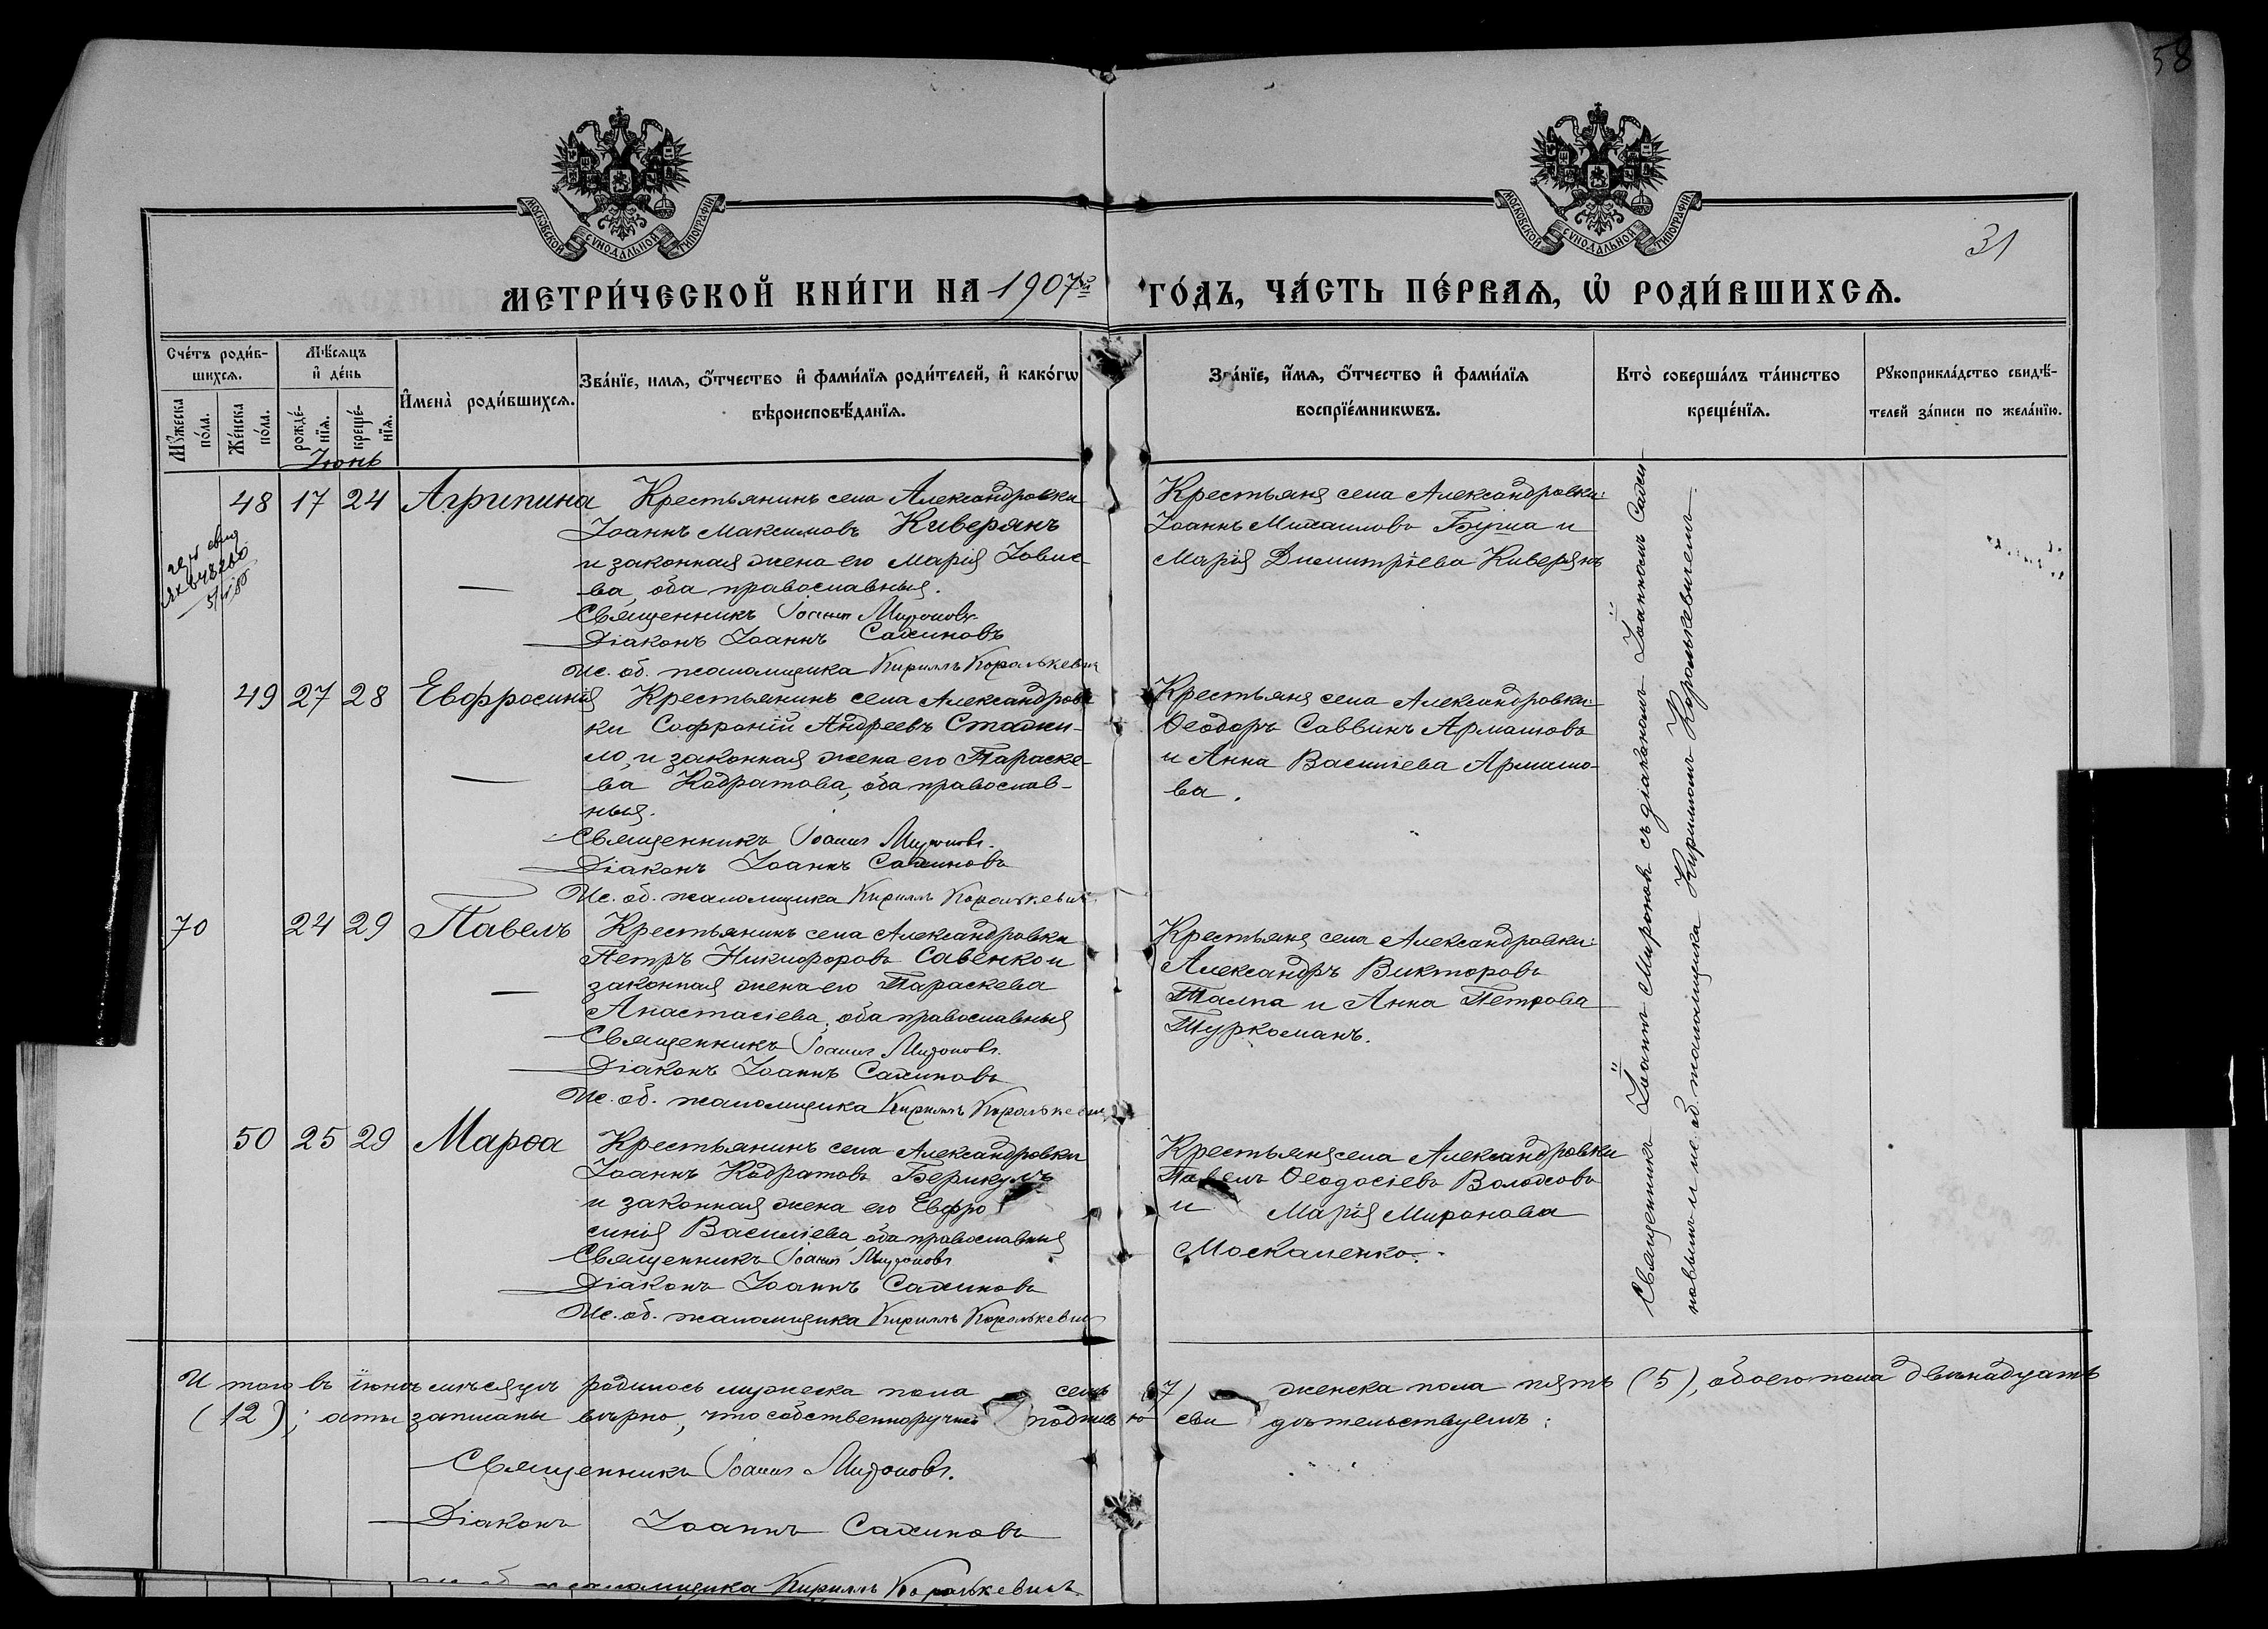 58
МОСКОВСКОЙ СѴНОДАЛЬНОЙ ТИПОГРАФІИ
МОСКОВСКОЙ СѴНОДАЛЬНОЙ ТИПОГРАФІИ
31
МЕТРИ́ЧЕСКОЙ КНИ́ГИ НА 1907й ГО́ДЪ, ЧА́СТЬ ПЕ́РВАѦ, Ѡ҆ РОДИ́ВШИХСѦ.
Сче́тъ роди́в-
шихсѧ.
Мꙋ́жеска по́ла.
Же́нска по́ла.
Мѣ́сѧцъ
и҆ де́нь
рожде́-
нїѧ.
креще́-
нїѧ.
И҆мена̀ роди́вшихсѧ.
Зва́нїе, имѧ, ѻ҆́тчество и҆ фами́лїѧ роди́телей, и҆ како́гѡ
вѣроисповѣ́данїѧ.
Зва́нїе, и҆́мѧ, ѻ҆́тчество и҆ фами́лїѧ
воспрїе́мникѡвъ.
Кто̀ соверша́лъ та́инство
креще́нїѧ.
Рꙋкоприкла́дство свидѣ́-
телей за́писи по жела́нїю.
Іюнь
48 17 24 Агрипина Крестьянинъ села Александровки
Іоаннъ Максимовъ Киверянъ
и законная жена его Марія Іовле-
ва, оба православныя.
Священникъ Іоаннъ Мироновъ
Діаконъ Іоаннъ
Ис. об. псаломщика Кирилъ Королькевичъ
Крестьяне села Александровки:
Іоаннъ Михаиловъ и
Марія Димитріева Киверянъ
49 27 28 Евфросинія Крестьянинъ села Александров-
ки Софроній Андреевъ
и законная жена его Параске-
ва Кодратова, оба православ-
ныя.
Священникъ Іоаннъ Мироновъ.
Діаконъ Іоаннъ
Ис. об. псаломщика Кирилъ Королькевичъ
Крестьяне села Александровки:
Ѳеодоръ Саввинъ Армашовъ
и Анна Василіева Армашо-
ва.
70 24 29 Павелъ Крестьянинъ села Александровки
Петръ Никифоровъ Савенко и
законная жена его Параскева
Анастасіева, оба православныя
Священникъ Іоаннъ Мироновъ.
Діаконъ Іоаннъ
Ис. об. псаломщика Кирилъ Королькевичъ
Крестьяне села Александровки:
Александръ Викторовъ
Талпа и Анна Петрова
Туркоманъ.
50 25 29 Марѳа Крестьянинъ села Александровки
Іоаннъ Кодратовъ Берикулъ
и законная жена его Евфро
синія Василіева, оба православныя
Священникъ Іоаннъ Мироновъ
Діаконъ Іоаннъ
Ис. об. псаломщика Кирилъ Королькевичъ
Крестьяне села Александровки
Павелъ Ѳеодосіевъ
и Марія Миронова
Москаленко.
Священникъ Іоаннъ Мироновъ съ діакономъ Іоанномъ
новымъ и ис. об. псаломщика Кириломъ Королькевичемъ
Итого въ іюнѣ мѣсяцѣ родилось мужеска пола семь (7) женска пола пять (5), обоего пола двѣнадцать
(12); акты записаны вѣрно, что собственноручною подписью свидѣтельствуемъ:
Священникъ Іоаннъ Мироновъ.
Діаконъ Іоаннъ
псаломщика Кирилъ Королькевичъ